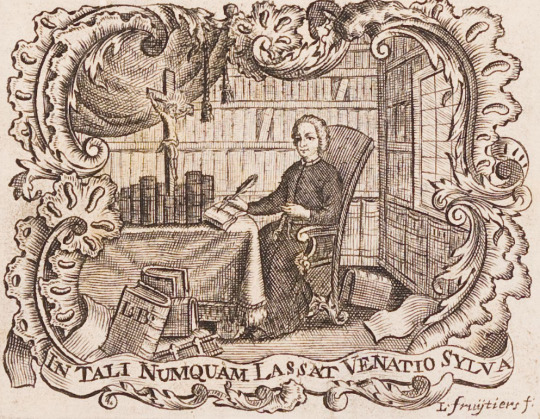 IN TALI NUMQUAM LASSAT VENATIO SYLVA
L. fruijtiers f.